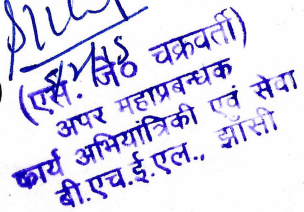 (एस. जे० चक्रवर्ती)
अपर महाप्रबन्धक
कार्य अभियांत्रिकी एवं सेवा
बी.एच.ई.एल., झाँसी